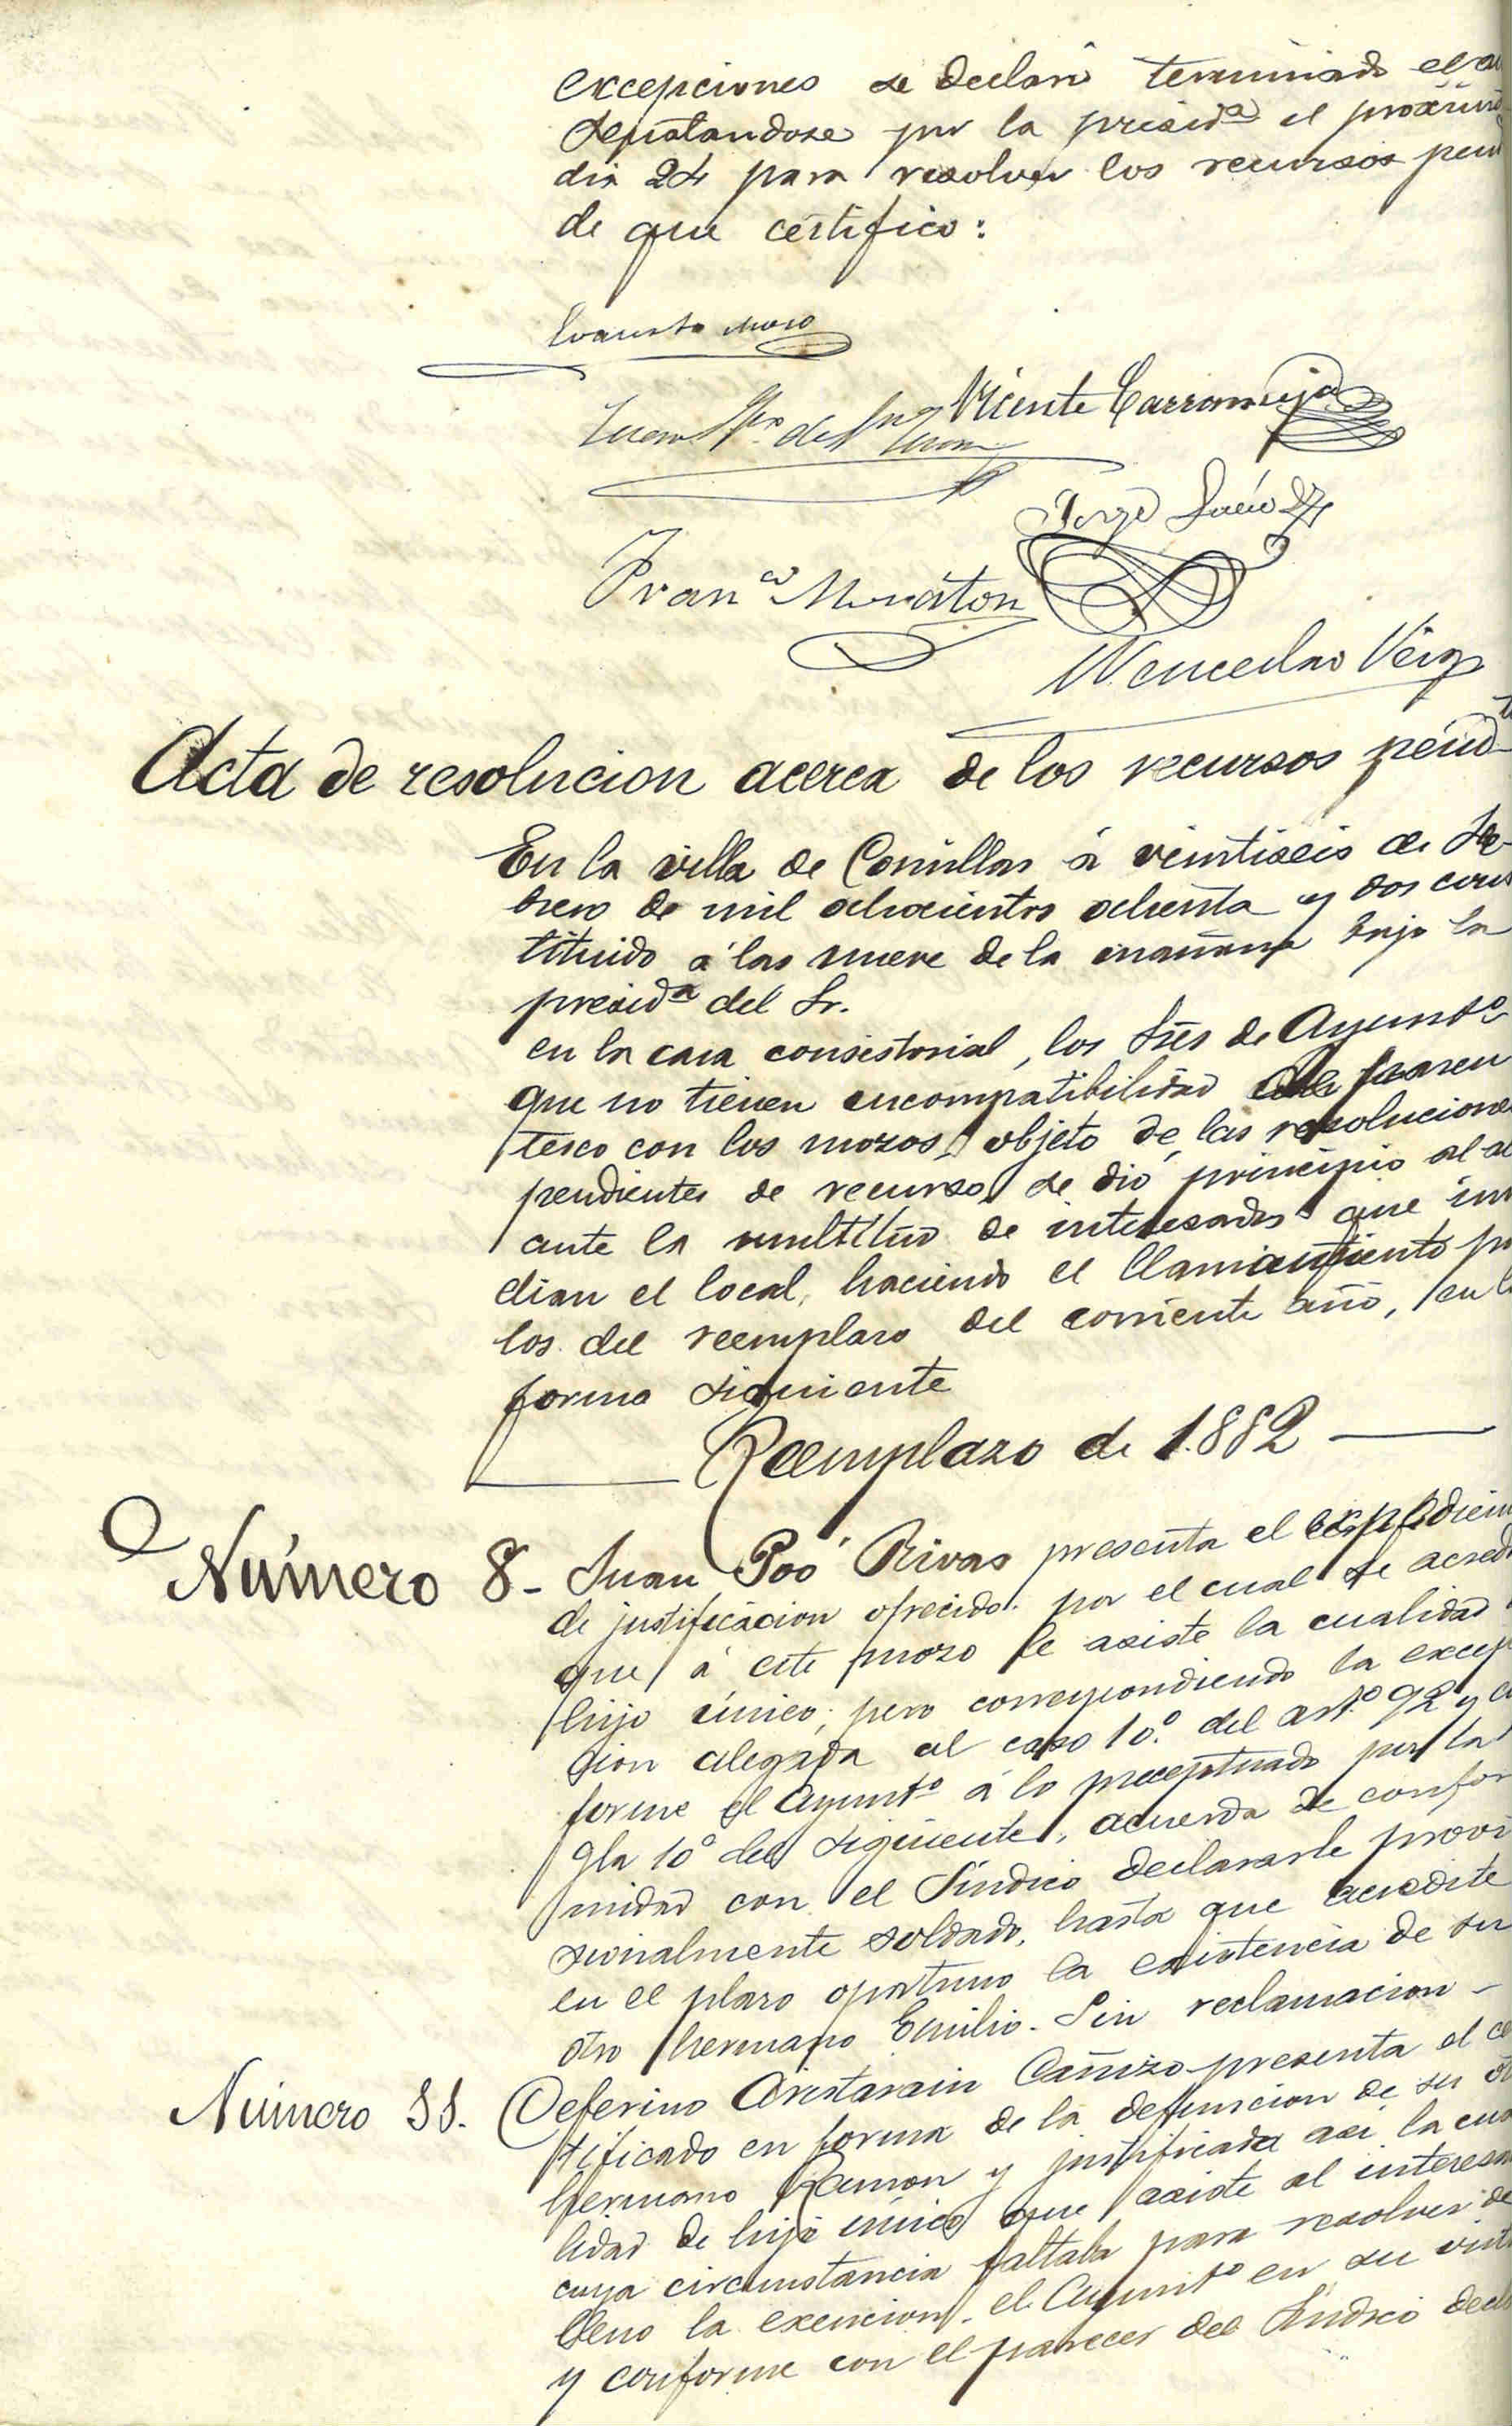 excepciones se declaró terminado el a
señalandose por la presid.ª el próximo
dia 24 para resolver los recursos pend
de que certifico:
Evaristo Moro
Juan de
Vicente Carranceja
Jorge
Fran.co Moratón
Wenceslao Veiga
Acta de resolucion acerca de los recursos pend.tes
En la villa de Comillas á veintiseis de Fe-
brero de mil ochocientos ochenta y dos cons
tituido á las nueve de la mañana bajo la
presid.ª del Sr.
en la casa consistorial, los Sres de Ayunt.º
que no tienen incompatibilidad de paren
tesco con los mozos objeto de las resoluciones
pendientes de recurso, se dió principio al ac
ante la multitud de interesados que inva
dian el local, haciendo el llamamiento por
los del reemplazo del corriente año, en la
forma siguiente
Reemplazo de 1.882
Número 8 - Juan Poó Rivas presenta el expedien
de justificacion ofrecido por el cual se acred
que á este mozo le asiste la cualidad
hijo único; pero correspondiendo la excep
cion alegada al caso 10.º del art.º 92 y con
forme el Ayunt.º á lo preceptuado por la
gla 10º del siguiente, acuerda de confor
midad con el Síndico declararle provi
sionalmente soldado, hasta que acredite
en el plazo oportuno la existencia de su
otro hermano Emilio. Sin reclamacion -
Número 11. Ceferino Aristarain Cañizo presenta el ce
tificado en forma de la defuncion de su ot
hermano Ramon y justificada asi la cua
lidad de hijo único que asiste al interesa
cuya circunstancia faltaba para resolver de
lleno la exencion, el Ayunt.º en su vist
y conforme con el parecer del Síndico decla